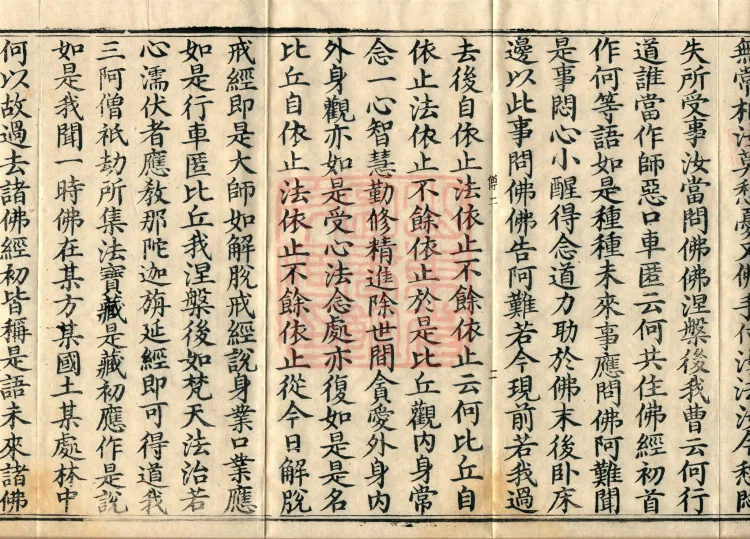 無常相汝莫愁憂又佛手付汝法汝今愁悶
失所受事汝當問佛佛涅槃後我曹云何行
道誰當作師惡口車匿云何共住佛經初首
作何等語如是種種未來事應問佛阿難聞
是事悶心小醒得念道力助於佛末後卧床
邊以此事問佛佛告阿難若今現前若我過
傅二 二
去後自依止法依止不餘依止云何比丘自
依止法依止不餘依止於是比丘觀內身常
念一心智慧勤修精進除世間貪愛外身內
外身觀亦如是受心法念處亦復如是是名
比丘自依止法依止不餘依止從今日解脫
戒經即是大師如解脫戒經說身業口業應
如是行車匿比丘我涅槃後如梵天法治若
心濡伏者應教那陀迦旃延經即可得道我
三阿僧祇劫所集法寶藏是藏初應作是說
如是我聞一時佛在某方某國土某處林中
何以故過去諸佛經初皆稱是語未來諸佛